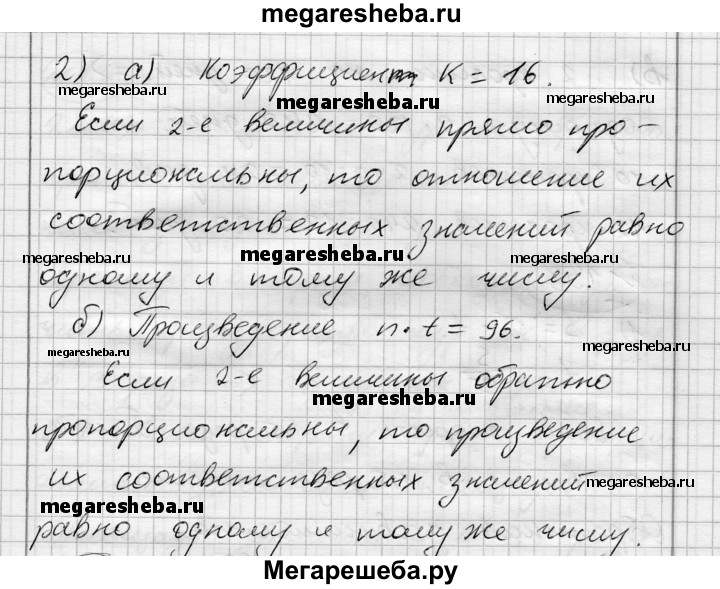 megaresheba.ru
2) а) Коэффициент К = 16.
megaresheba.ru
megaresheba.ru
megaresheba.ru
Если 2-е величины прямо про-
порциональны, то отношение их
соответственных значений равно
megaresheba.ru
megaresheba.ru
megaresheba.ru
одному и тому же числу.
б) Произведение n · t = 96.
megaresheba.ru
megaresheba.ru
Если 2-е величины обратно
megaresheba.ru
пропорциональны, то произведение
их соответственных значений
megaresheba.ru
megaresheba.ru
megaresheba.ru
равно одному и тому же числу.
Мегарешеба.ру